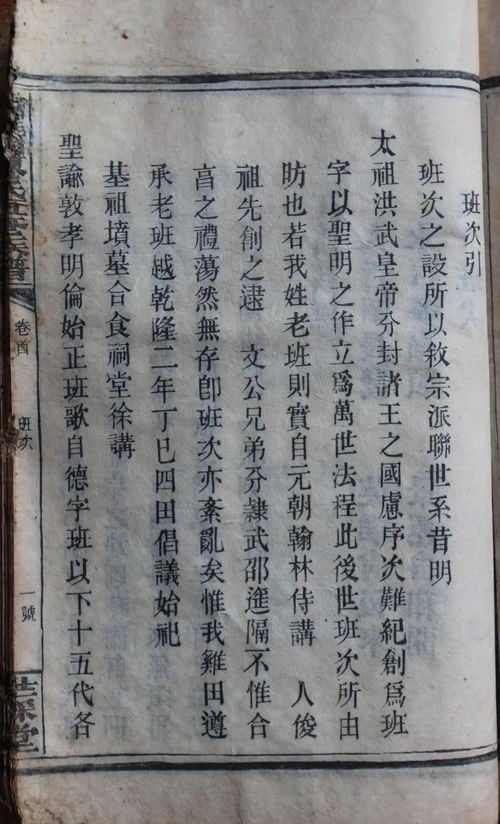 班次引
班次之設所以敘宗派聯世系昔明
太祖洪武皇帝分封諸王之國慮序次難紀創爲班
字以聖明之作立爲萬世法程此後世班次所由
昉也若我姓老班則實自元朝翰林侍講 人俊
祖先創之逮 文公兄弟分隸武邵進隔不惟合
亯之禮蕩然無存卽班次亦紊亂矣惟我雞田遵
承老班越乾隆二年丁巳四田倡議始祀
基祖墳墓合食祠堂徐講
聖諭敦孝明倫始正班歌自德字班以下十五代各
卷首
班次
一號
堂